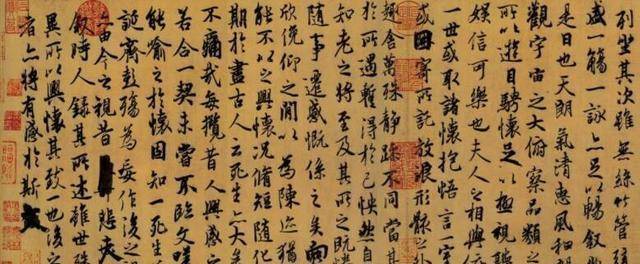 列坐其次雖無絲竹管弦
盛一觴一詠亦足以暢敘
是日也天朗氣清惠風和暢
觀宇宙之大俯察品類之
所以遊目騁懷足以極視聽
娛信可樂也夫人之相與
一世或取諸懷抱悟言一室
或因寄所託放浪形骸之外
趣舍萬殊靜躁不同當其
於所遇暫得於己怏然自
知老之將至及其所之既惓
隨事遷感慨係之矣向
欣俛仰之間以為陳迹猶
能不以之興懷況脩短隨化
期於盡古人云死生亦大矣
不痛哉每攬昔人興感之
若合一契未嘗不臨文嗟
能喻之於懷固知一死生
誕齊彭殤為妄作後之
亦由今之視昔悲夫
敘時人錄其所述雖世殊
異所以興懷其致一也後之
者亦將有感於斯